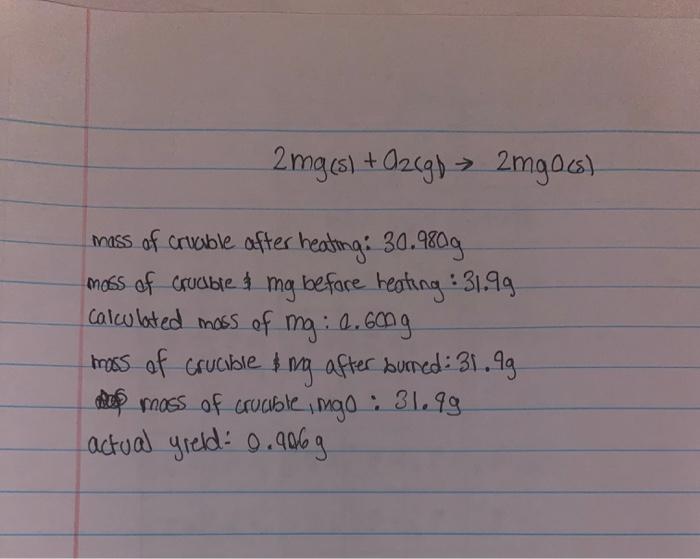 2mg(s) + O2(g) → 2mgO(s)
mass of crucible after heating: 30.980g
mass of crucible & mg before heating: 31.9g
calculated mass of mg: 0.600g
mass of crucible & mg after burned: 31.9g
mass of crucible, mgO: 31.9g
actual yield: 0.906g